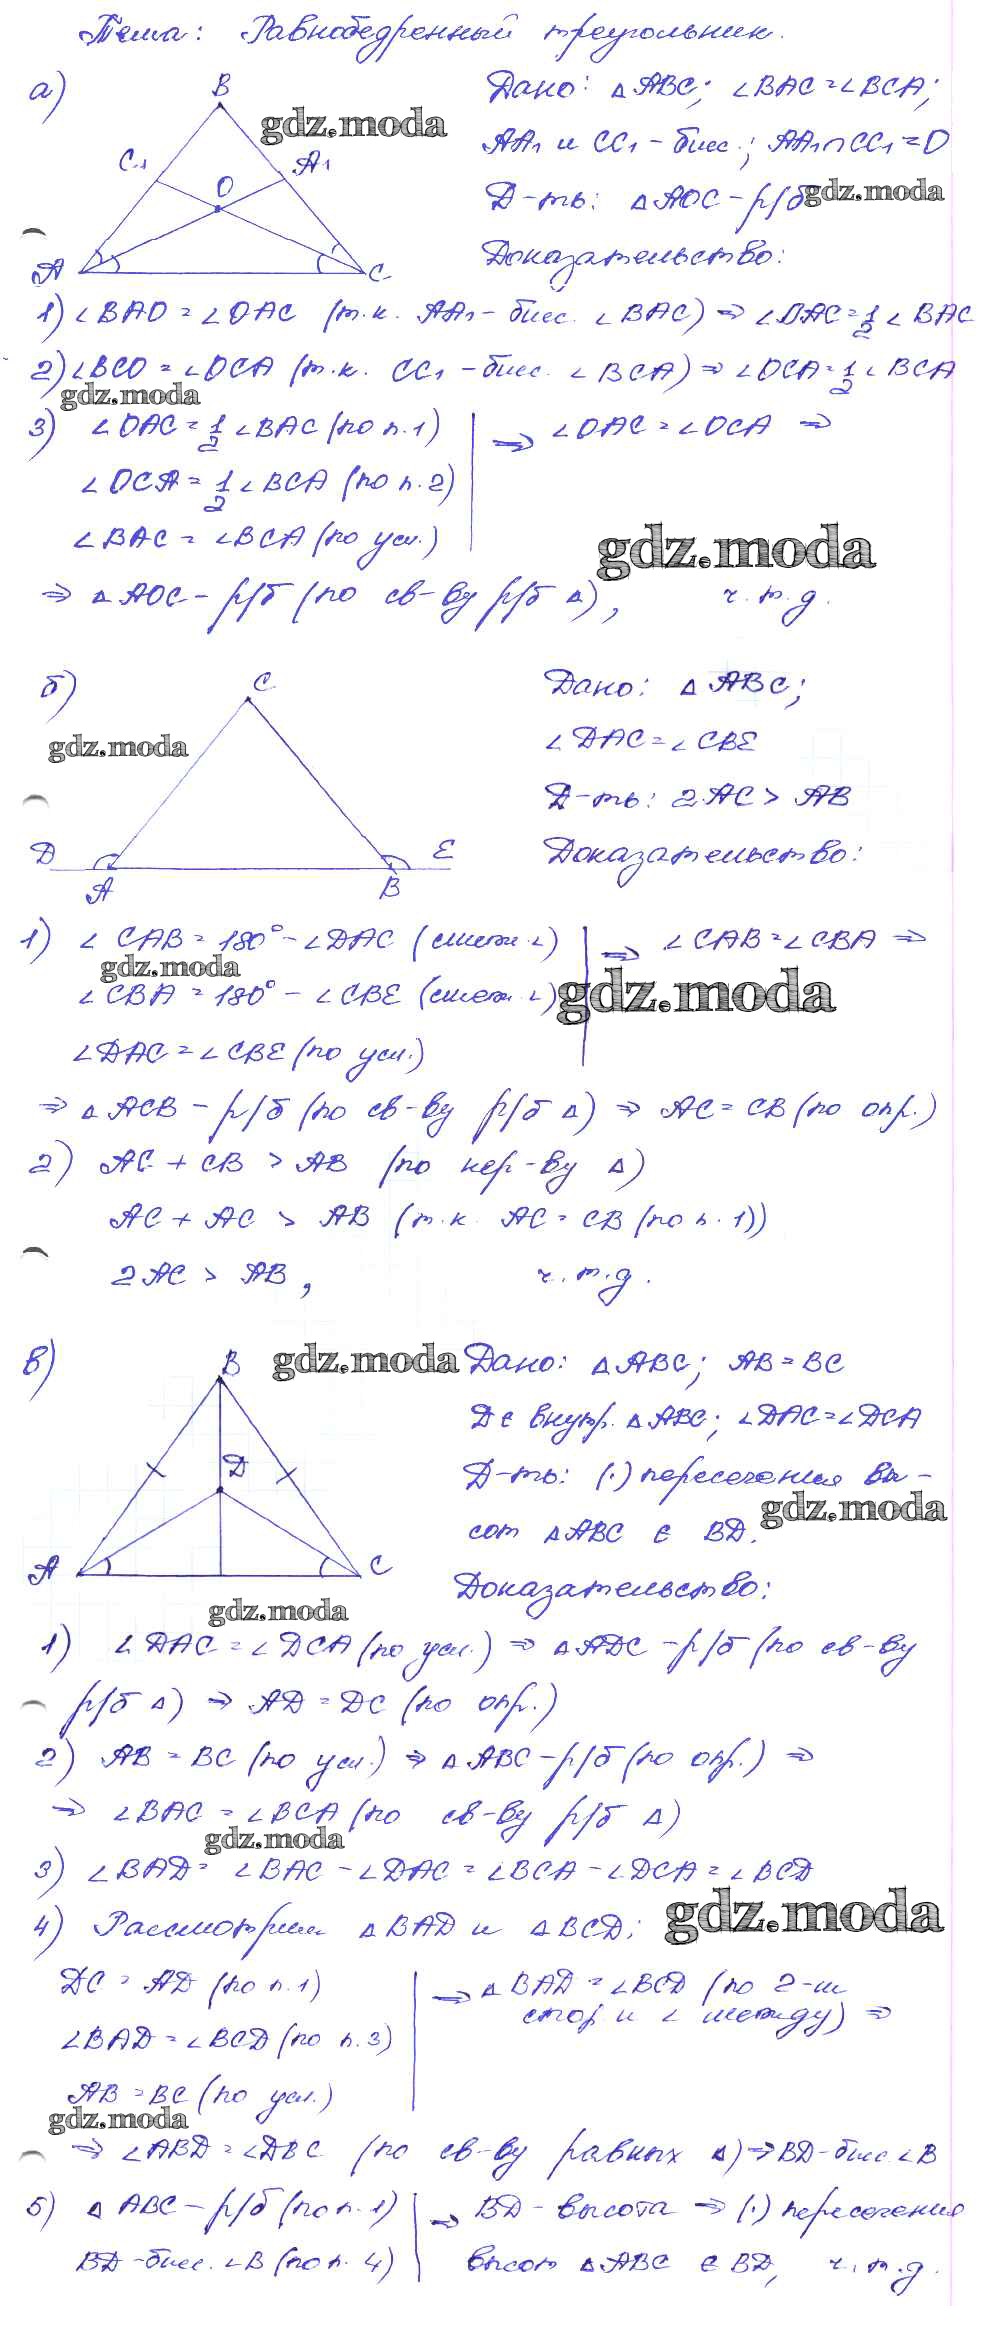 Тема: Равнобедренный треугольник.
а)
B
gdz.moda
C₁
A₁
O
A
C
Дано: △ABC; ∠BAC=∠BCA;
AA₁ и CC₁ - бисс.; AA₁∩CC₁=O
Д-ть: △AOC-р/б
gdz.moda
Доказательство:
1) ∠BAO = ∠OAC (т.к. AA₁ - бисс. ∠BAC) ⇒ ∠OAC = 1/2 ∠BAC
2) ∠BCO = ∠OCA (т.к. CC₁ - бисс. ∠BCA) ⇒ ∠OCA = 1/2 ∠BCA
gdz.moda
3) ∠OAC = 1/2 ∠BAC (по п.1) ⇒ ∠OAC = ∠OCA ⇒
∠OCA = 1/2 ∠BCA (по п.2)
∠BAC = ∠BCA (по усл.)
gdz.moda
⇒ △AOC - р/б (по св-ву р/б △), ч.т.д.
б)
C
gdz.moda
D
A
B
E
Дано: △ABC;
∠DAC = ∠CBE
Д-ть: 2AC > AB
Доказательство:
1) ∠CAB = 180° - ∠DAC (смежн. ∠) ⇒ ∠CAB = ∠CBA ⇒
gdz.moda
∠CBA = 180° - ∠CBE (смежн. ∠)
gdz.moda
∠DAC = ∠CBE (по усл.)
⇒ △ACB - р/б (по св-ву р/б △) ⇒ AC = CB (по опр.)
2) AC + CB > AB (по нер-ву △)
AC + AC > AB (т.к. AC = CB (по п.1))
2AC > AB, ч.т.д.
в)
B
gdz.moda
D
A
C
Дано: △ABC; AB = BC
D ∈ внутр. △ABC; ∠DAC = ∠DCA
Д-ть: (·) пересечения вы-
gdz.moda
сот △ABC ∈ BD.
Доказательство:
gdz.moda
1) ∠DAC = ∠DCA (по усл.) ⇒ △ADC - р/б (по св-ву
р/б △) ⇒ AD = DC (по опр.)
2) AB = BC (по усл.) ⇒ △ABC - р/б (по опр.) ⇒
⇒ ∠BAC = ∠BCA (по св-ву р/б △)
gdz.moda
3) ∠BAD = ∠BAC - ∠DAC = ∠BCA - ∠DCA = ∠BCD
4) Рассмотрим △BAD и △BCD;
gdz.moda
DC = AD (по п.1) ⇒ △BAD = ∠BCD (по 2-м
стор. и ∠ между) ⇒
∠BAD = ∠BCD (по п.3)
AB = BC (по усл.)
gdz.moda
⇒ ∠ABD = ∠DBC (по св-ву равных △) ⇒ BD - бисс. ∠B
5) △ABC - р/б (по п.1) ⇒ BD - высота ⇒ (·) пересечения
BD - бисс. ∠B (по п.4) высот △ABC ∈ BD, ч.т.д.